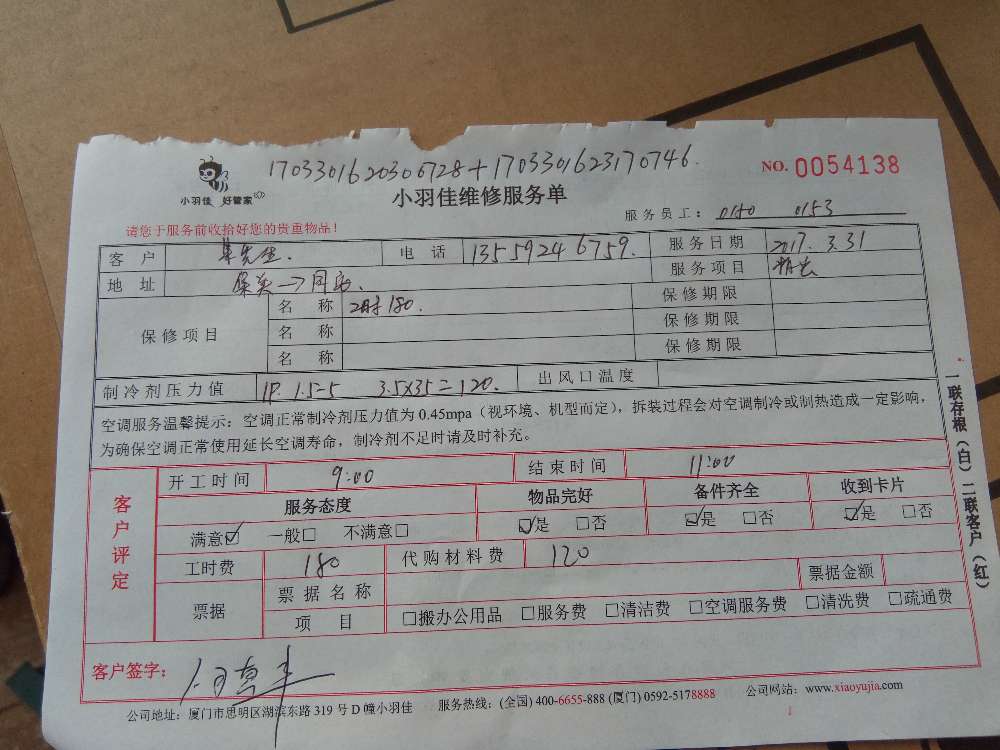 17033016203067 28+170330162317 0746.
NO. 0054138
小羽佳 好管家
小羽佳维修服务单
服务员工: 0150 0153
请您于服务前收拾好您的贵重物品!
客 户 先生. 电 话 13559246759. 服务日期 2017.3.31
地 址 → 服务项目
保修项目 名 称 180. 保修期限
名 称 保修期限
名 称 保修期限
制冷剂压力值 1P 1.5=5 3.5X35=120. 出风口温度
空调服务温馨提示:空调正常制冷剂压力值为 0.45mpa(视环境、机型而定),拆装过程会对空调制冷或制热造成一定影响,
为确保空调正常使用延长空调寿命,制冷剂不足时请及时补充。
客户评定
开工时间 9:00 结束时间 11:00
服务态度 物品完好 备件齐全 收到卡片
满意☑ 一般□ 不满意□ ☑是 □否 ☑是 □否 ☑是 □否
工时费 180 代购材料费 120
票据 票据名称 票据金额
项 目 □搬办公用品 □服务费 □清洁费 □空调服务费 □清洗费 □疏通费
客户签字:
公司地址:厦门市思明区湖滨东路 319 号 D 幢小羽佳 服务热线:(全国) 400-6655-888 (厦门) 0592-5178888 公司网站:www.xiaoyujia.com
一联存根(白) 二联客户(红)